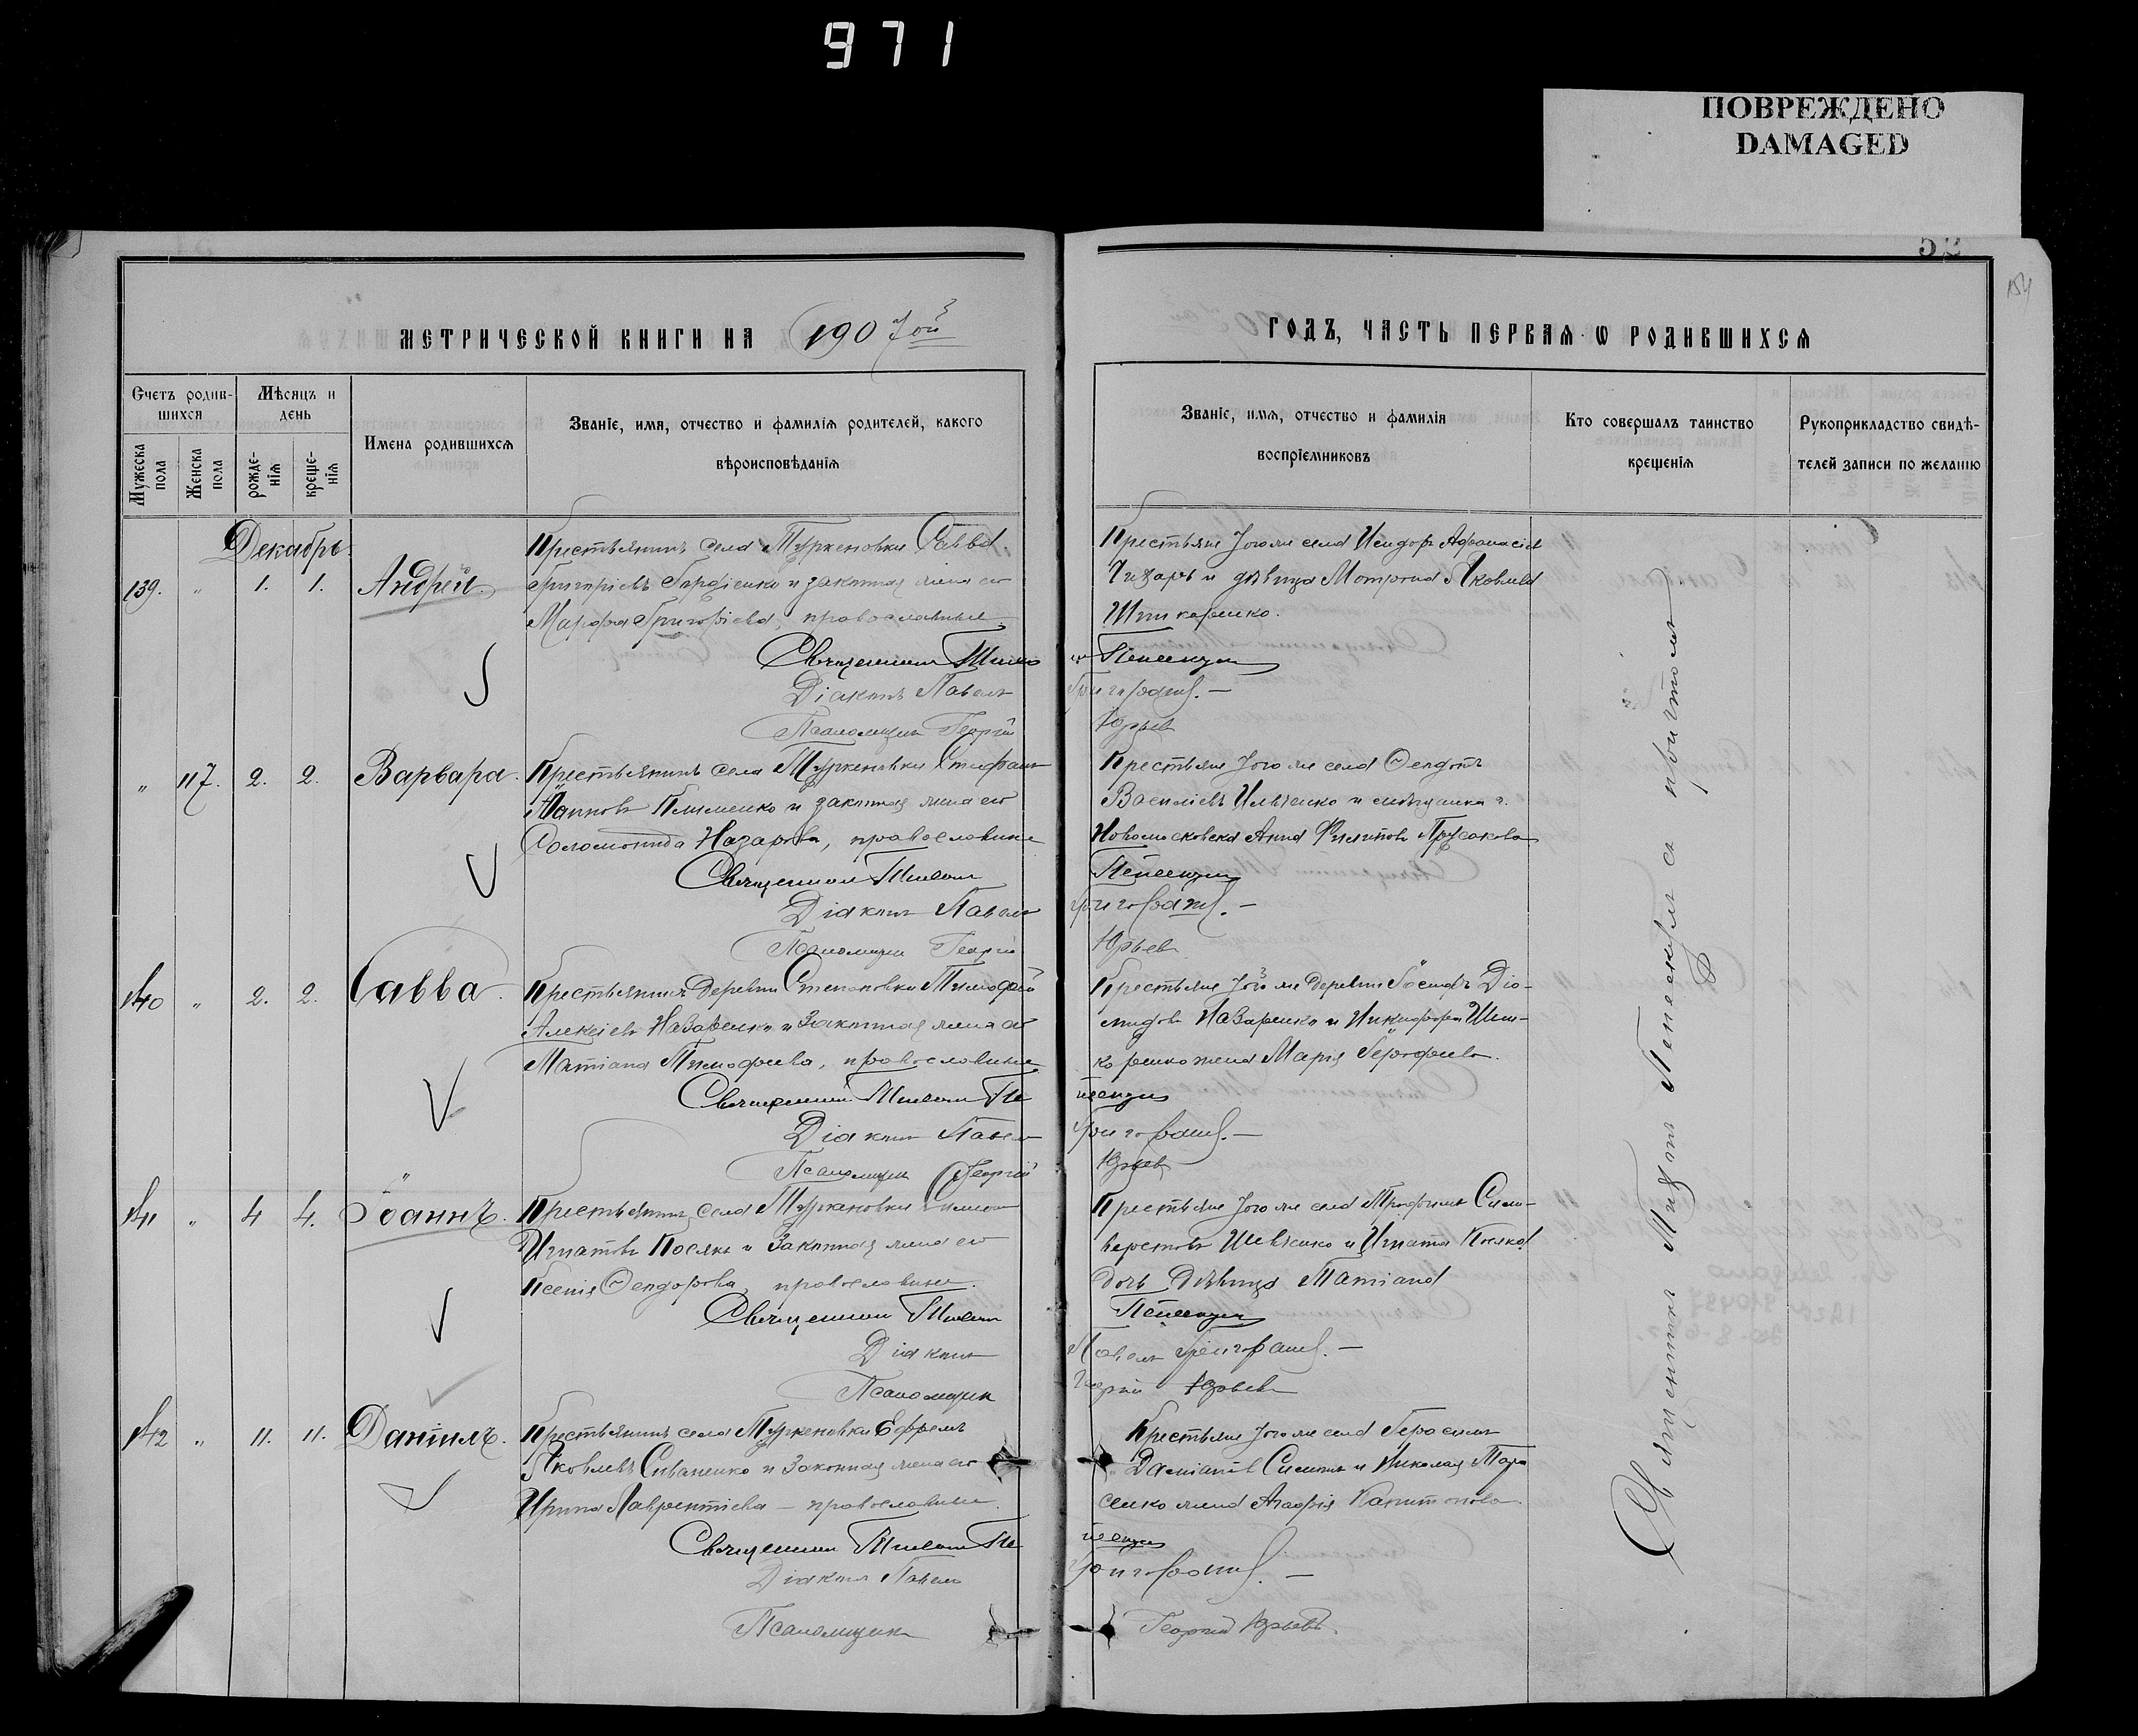 971
ПОВРЕЖДЕНО
DAMAGED
52
154
МЕТРИЧЕСКОЙ КНИГИ НА 1907ой
ГОДЪ, ЧАСТЬ ПЕРВАЯ Ѡ РОДИВШИХСЯ
Счетъ родив-
шихся
Мужеска пола
Женска пола
Мѣсяцъ и
день
рожде-
нія
креще-
нія
Имена родившихся
Званіе, имя, отчество и фамилія родителей, какого
вѣроисповѣданія
Званіе, имя, отчество и фамилія
воспріемниковъ
Кто совершалъ таинство
крещенія
Рукоприкладство свидѣ-
телей записи по желанію
Декабрь
139. „ 1. 1. Андрей.
Крестьянинъ села Туркеновки Савва
Григоріевъ Гордіенко и законная жена его
Марфа Григоріева, православные.
Крестьяне того же села Исидоръ Афанасіев
Чижаръ и дѣвица Матрона Яковлева
Шинкаренко.
Священникъ
Діаконъ Павелъ Григоровичъ. —
Псаломщикъ Георгій Юрьев
„ 117. 2. 2. Варвара.
Крестьянинъ села Туркеновки Стефанъ
Іоанновъ Клименко и законная жена его
Соломонида Назарова, православные
Крестьяне того же села Ѳеодотъ
Василіевъ Ильченко и мѣщанка г.
Новомосковска Анна Филипова Прусакова
Священникъ
Діаконъ Павелъ Григоровичъ. —
Псаломщикъ Георгій Юрьев
140 „ 2. 2. Савва.
Крестьянинъ деревни Степановки Тимофей
Алексіевъ Назаренко и законная жена его
Татіана Тимофеева, православные
Крестьяне той же деревни Іосифъ Діо-
мидовъ Назаренко и Никифора Шин-
коренко жена Марія
Священникъ
Діаконъ Павелъ Григоровичъ. —
Псаломщикъ Георгій Юрьев
141 „ 4 4. Іоаннъ.
Крестьянинъ села Туркеновки Симеон
Игнатовъ Косякъ и законная жена его
Ксенія Ѳеодорова православные.
Крестьяне того же села Трофимъ Силь-
верстовъ Шевченко и Игната Косяка
дочь дѣвица Татіана
Священникъ
Діаконъ Павелъ Григоровичъ. —
Псаломщикъ Георгій Юрьевъ
142 „ 11. 11. Даніилъ.
Крестьянинъ села Туркеновки Ефремъ
Яковлевъ Сиваненко и законная жена его
Ирина Лаврентіева — православные.
Крестьяне того же села Герасимъ
Даміановъ и Николая Тара
сенко жена Агафія Капитонова.
Священникъ
Діаконъ Павелъ Григоровичъ. —
Псаломщикъ Георгій Юрьевъ.
Священникъ съ причтомъ